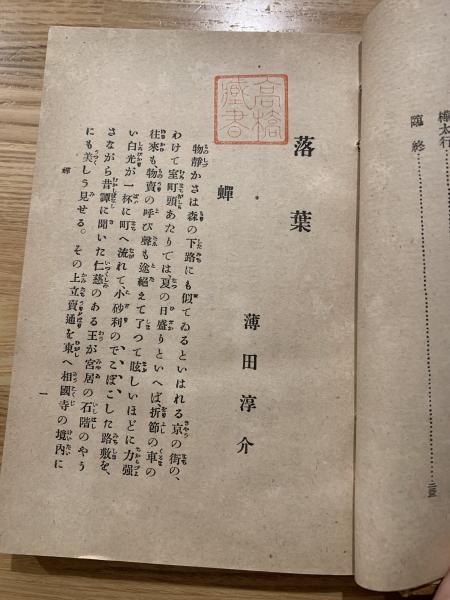 樺太行
臨終
高橋
藏書
落葉
薄田淳介
蟬
物靜かさは森の下路にも似てゐるといはれる京の街の、
わけて室町頭あたりでは夏の日盛りといへば、折節の車の
往來も、物賣の呼び聲も途絕えて了つて眩しいほどに力强
い白光が一杯に町へ流れて、小砂利のでこぼこした路敷を、
さながら昔譚に聞いた仁慈のある王が宮居の石階のやう
にも美しう見せる。その上立賣通を東へ相國寺の境內に
蟬
一